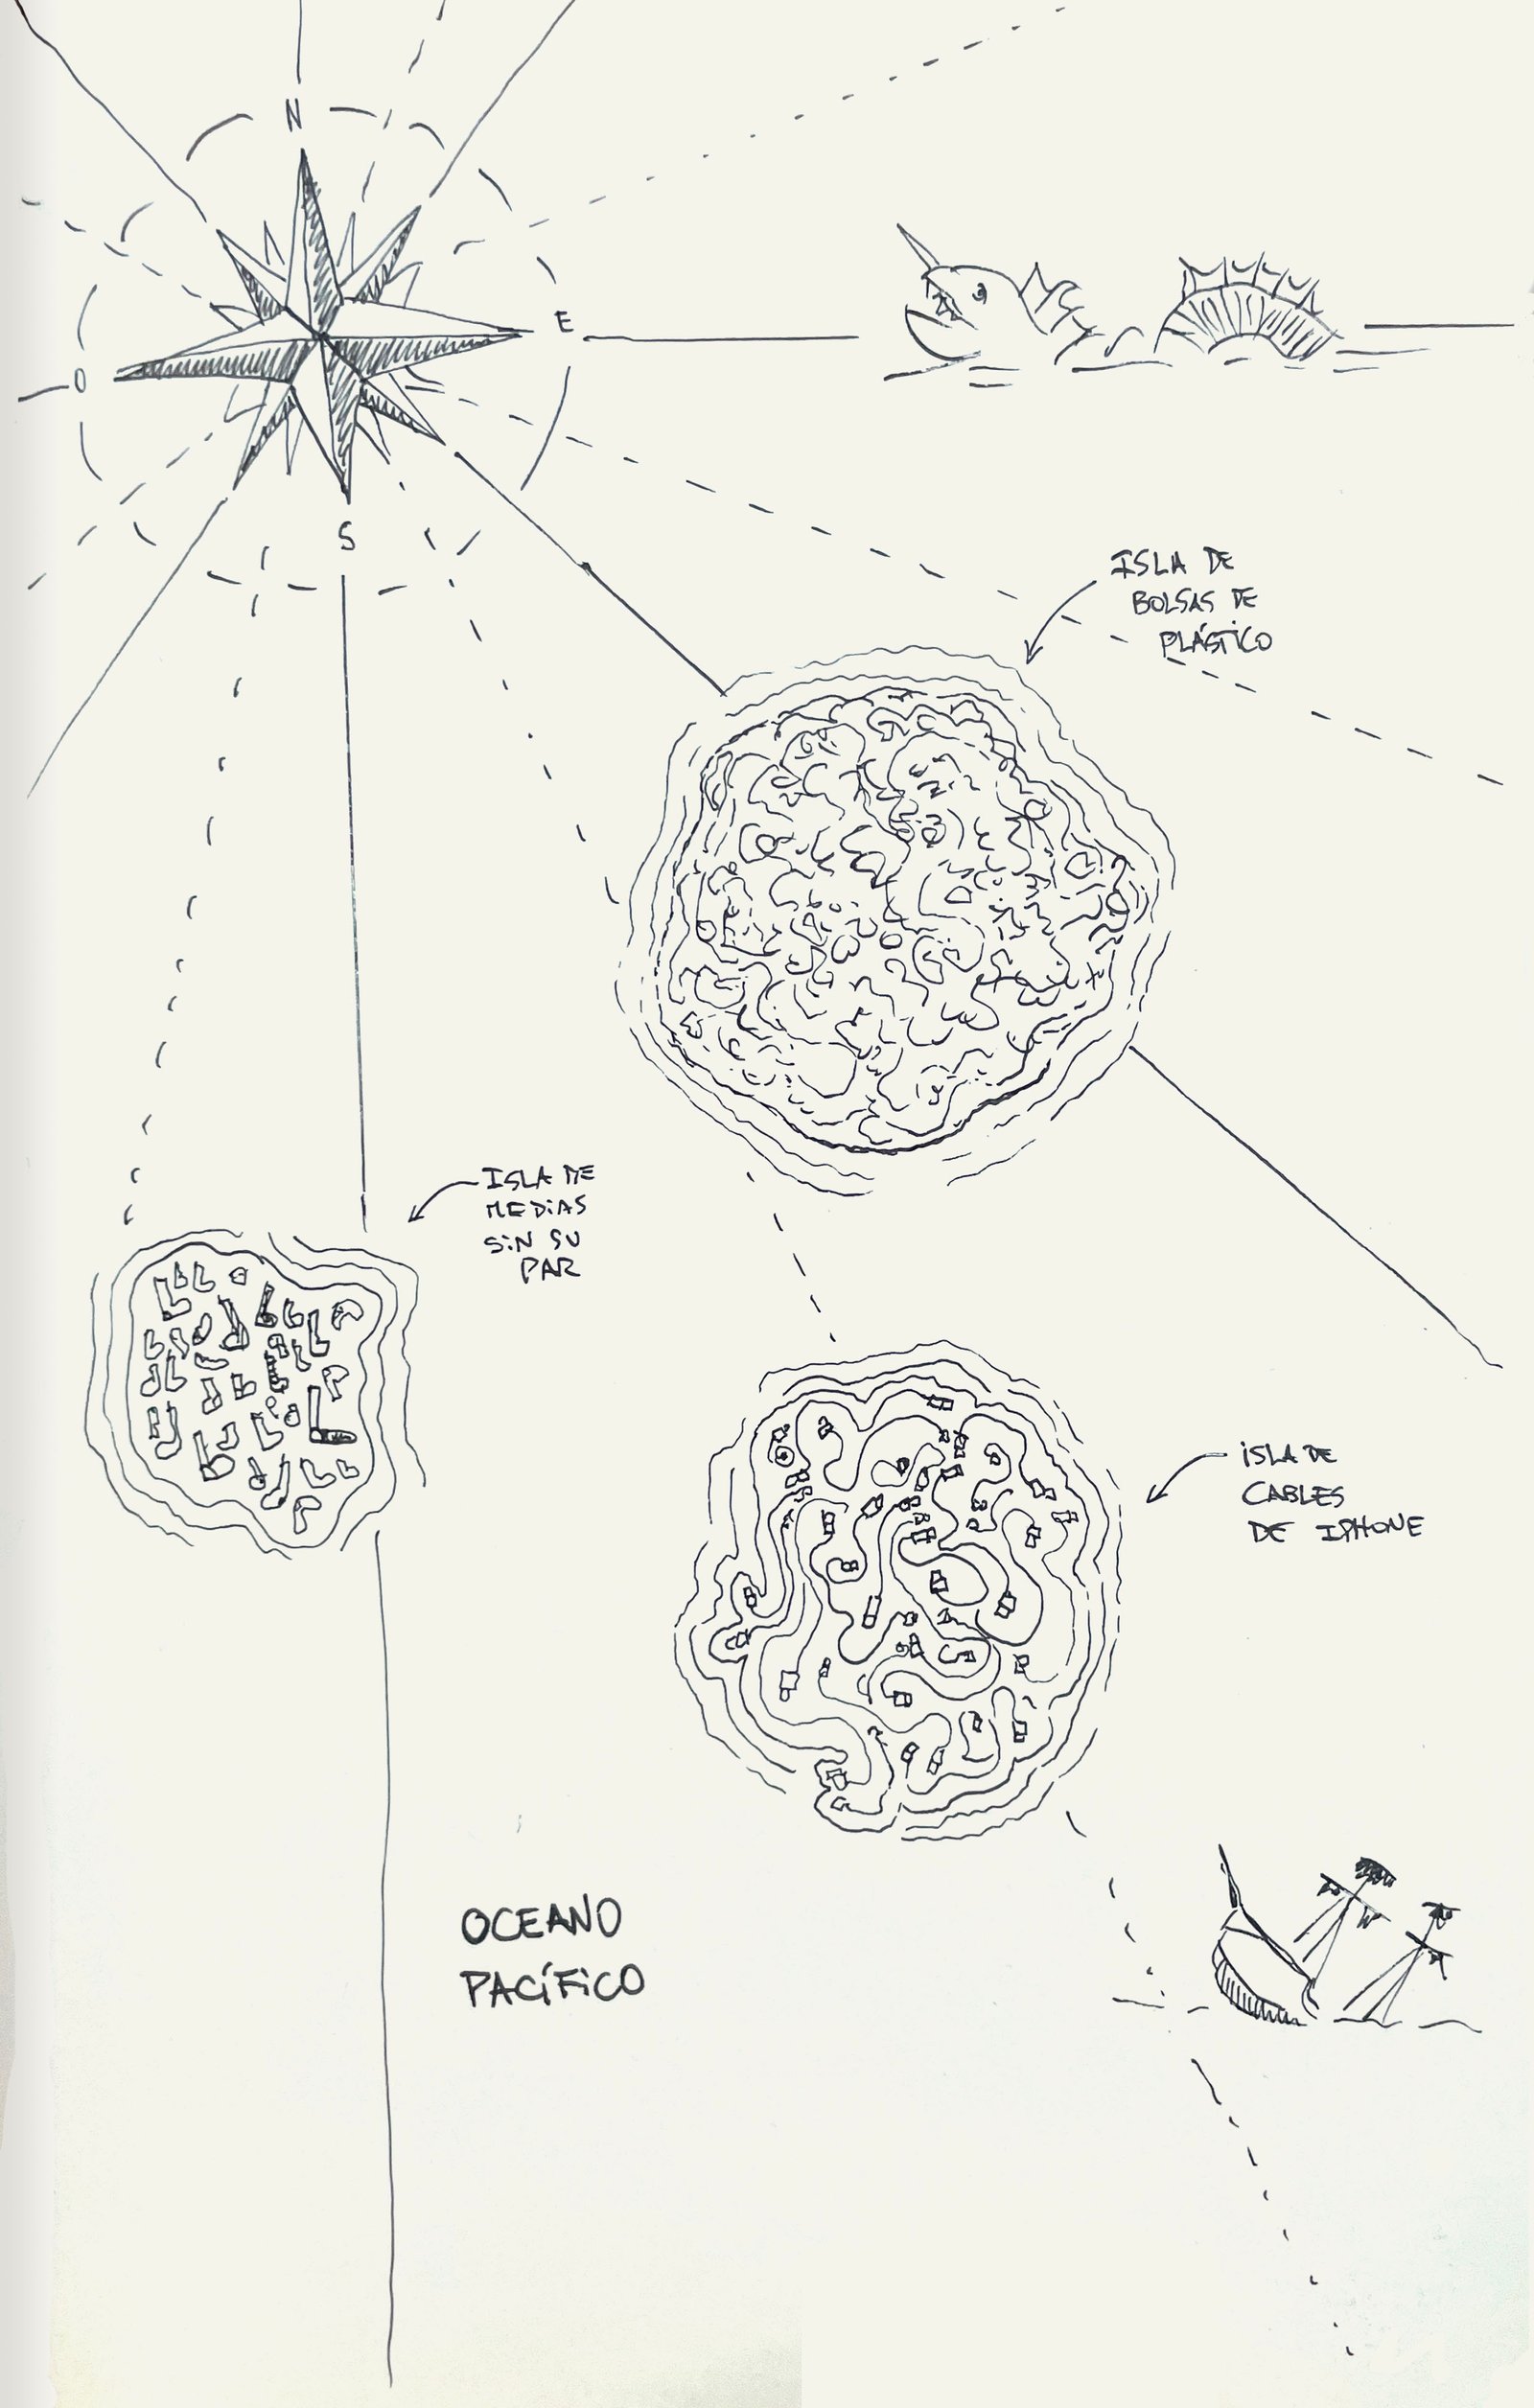 N
E
O
S
ISLA DE
BOLSAS DE
PLÁSTICO
ISLA DE
MEDIAS
SIN SU
PAR
ISLA DE
CABLES
DE IPHONE
OCEANO
PACÍFICO